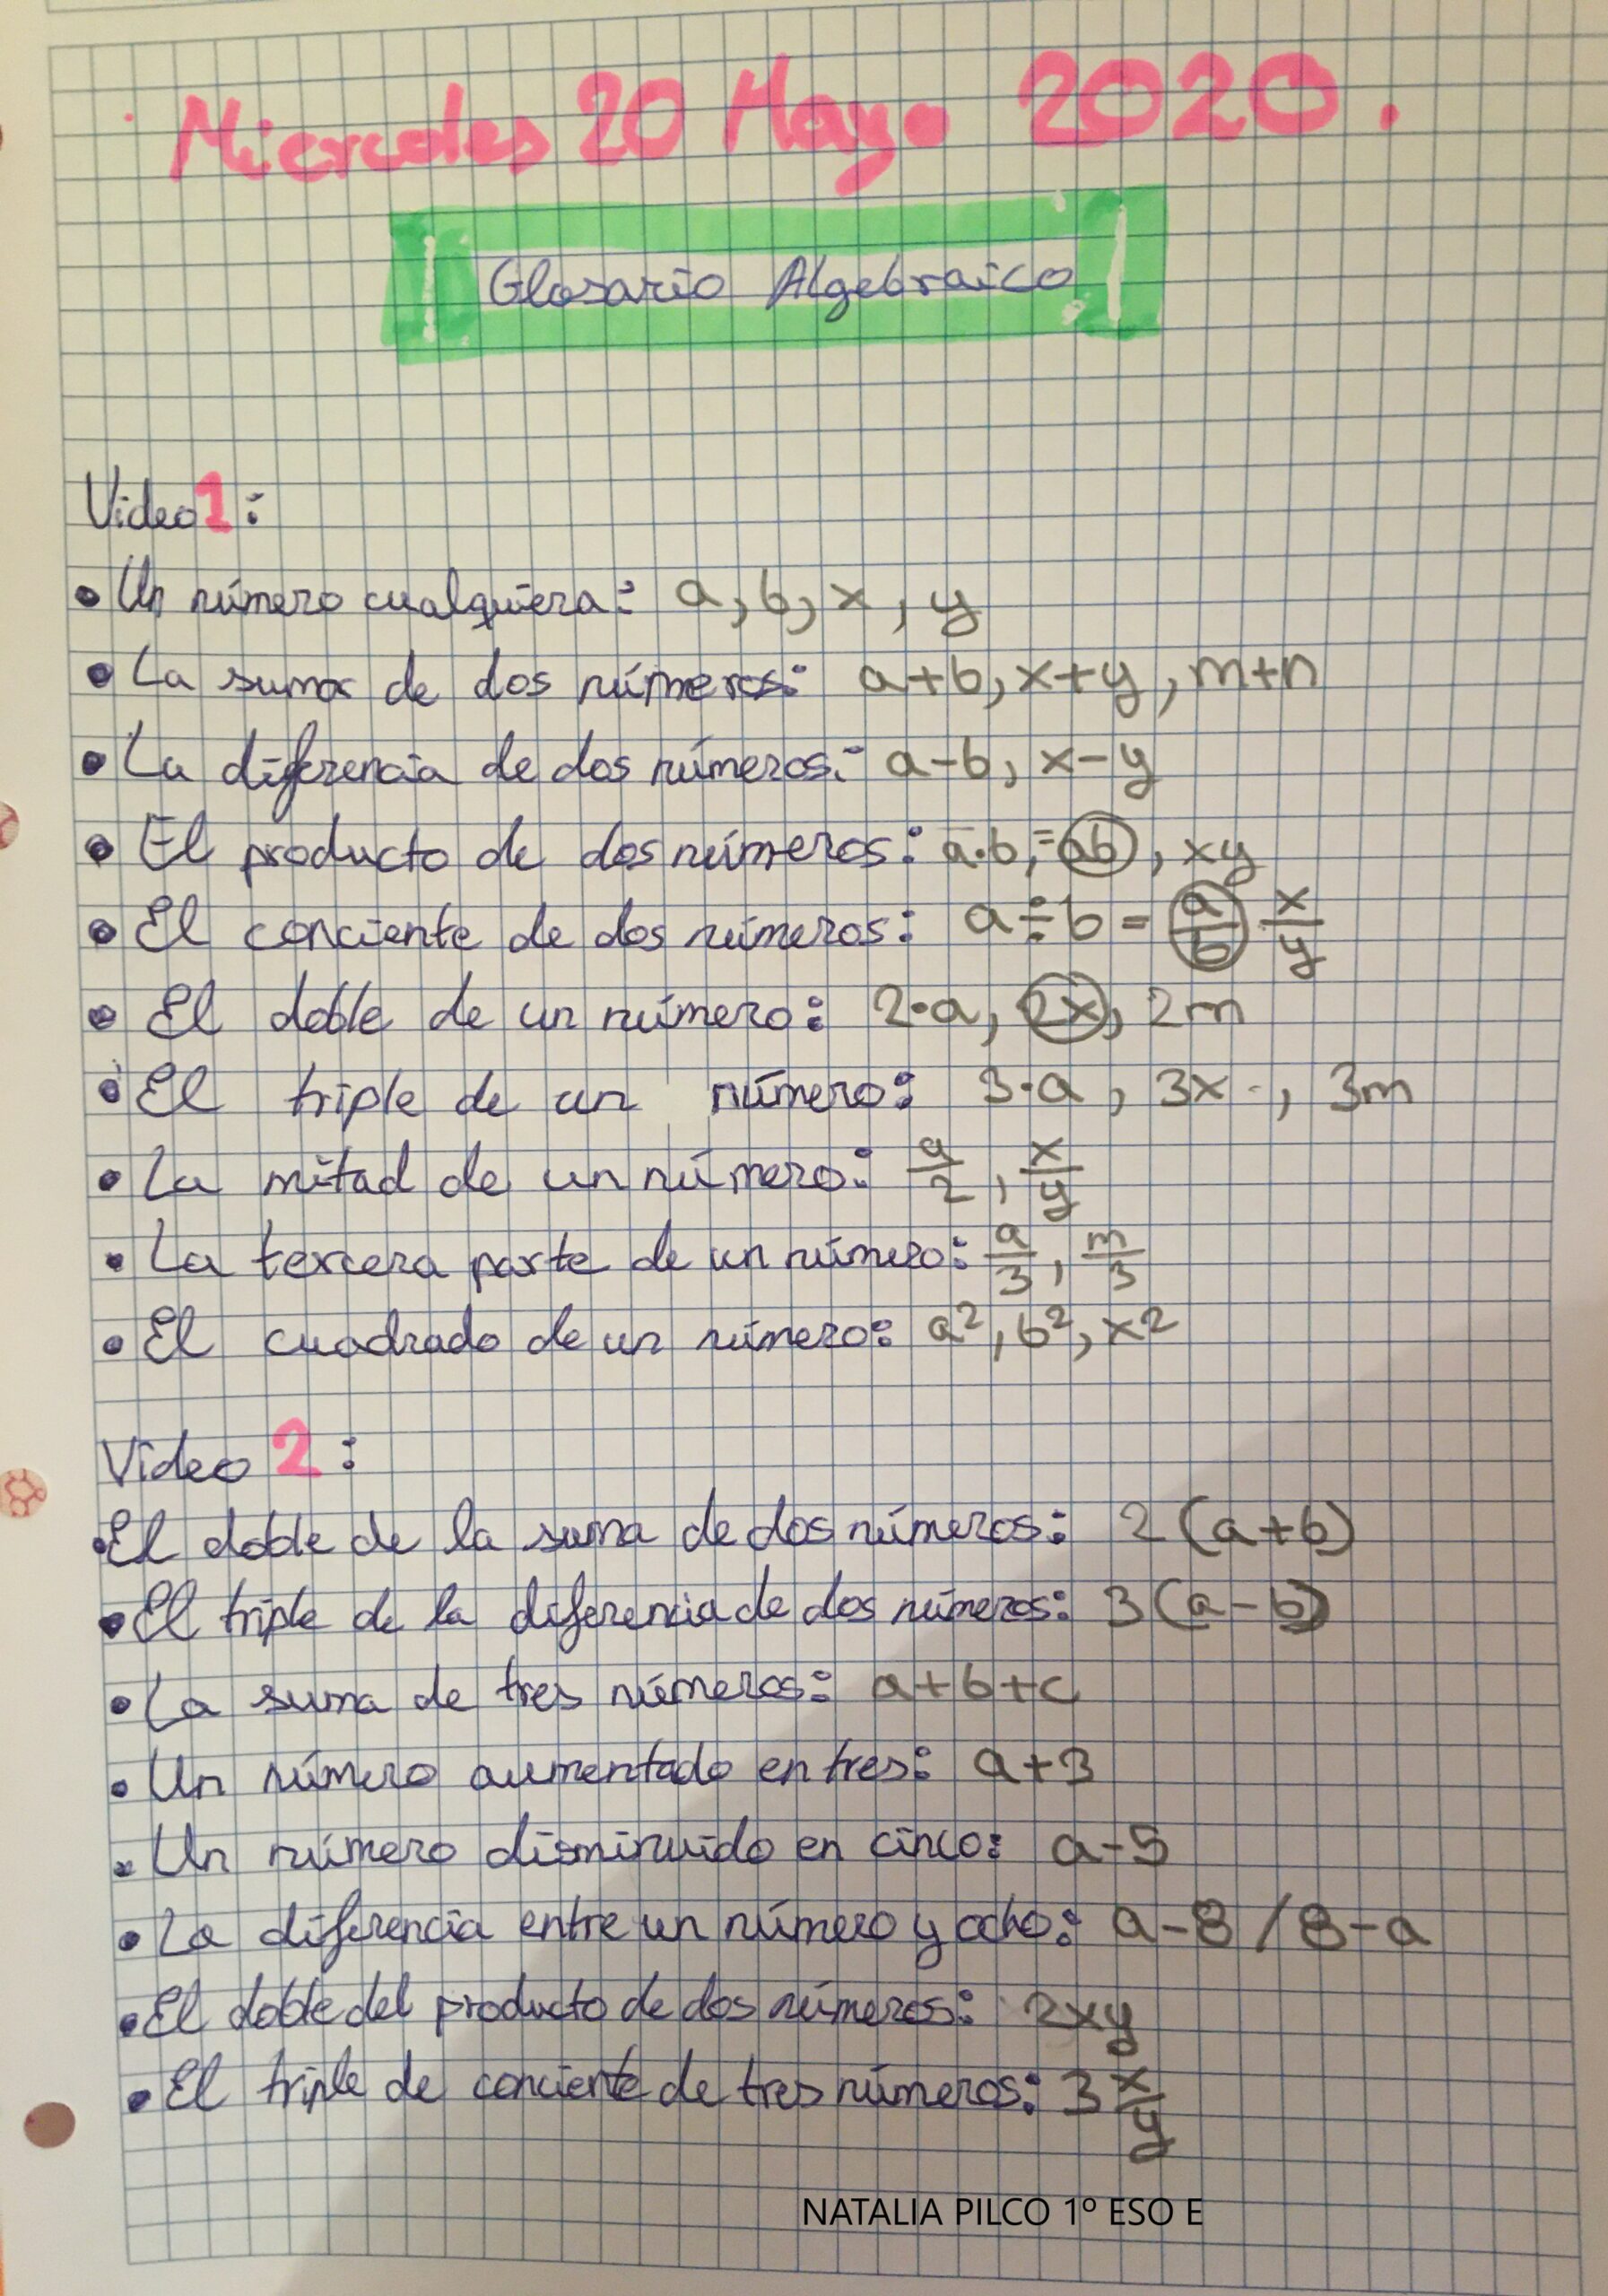 Miercoles 20 Mayo 2020.
Glosario Algebraico
Video 1:
• Un número cualquiera: a, b, x, y
• La suma de dos números: a+b, x+y, m+n
• La diferencia de dos números: a-b, x-y
• El producto de dos números: a·b, =ab, xy
• El conciente de dos números: a÷b = a/b x/y
• El doble de un número: 2·a, 2x, 2m
• El triple de un número: 3·a, 3x, 3m
• La mitad de un número: a/2, x/y
• La tercera parte de un número: a/3, m/3
• El cuadrado de un número: a², b², x²
Video 2:
• El doble de la suma de dos números: 2(a+b)
• El triple de la diferencia de dos números: 3(a-b)
• La suma de tres números: a+b+c
• Un número aumentado en tres: a+3
• Un número disminuido en cinco: a-5
• La diferencia entre un número y ocho: a-8 / 8-a
• El doble del producto de dos números: 2xy
• El triple de conciente de tres números: 3 x/y
NATALIA PILCO 1º ESO E